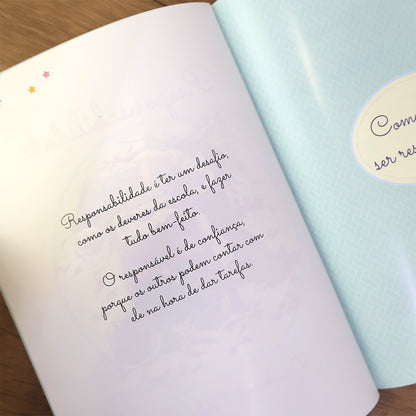 Responsabilidade é ter um desafio,
como os deveres da escola, e fazer
tudo bem-feito.
O responsável é de confiança,
porque os outros podem contar com
ele na hora de dar tarefas.
Como
ser